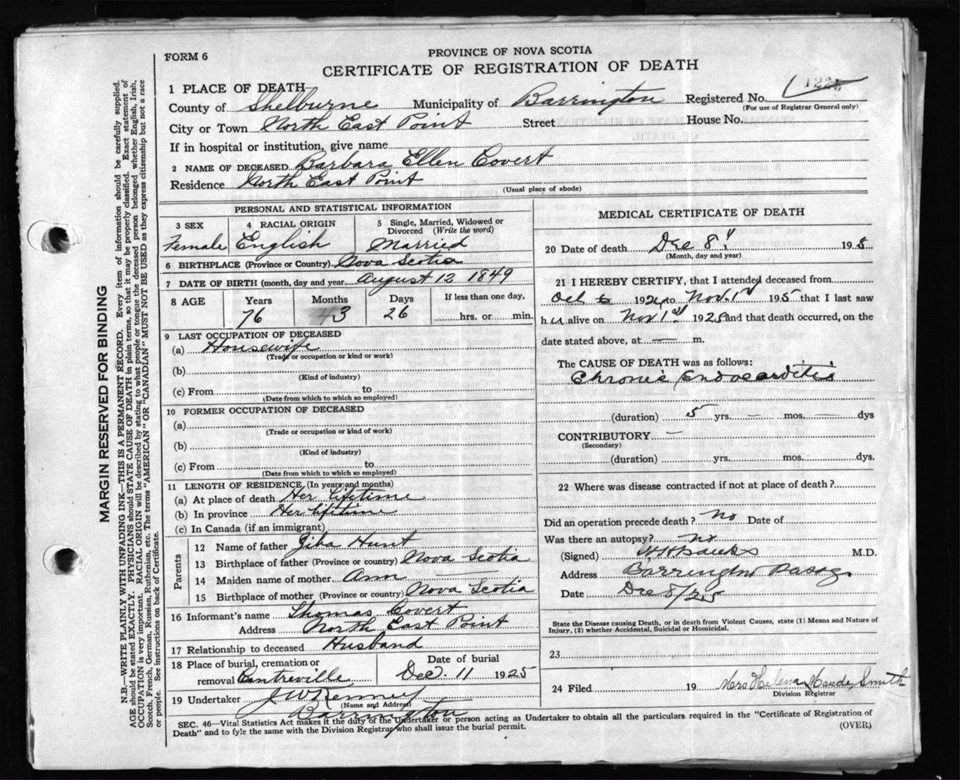 FORM 6
PROVINCE OF NOVA SCOTIA
CERTIFICATE OF REGISTRATION OF DEATH
1 PLACE OF DEATH
County of Shelburne Municipality of Barrington Registered No.
(For use of Registrar General only)
City or Town North East Point Street House No.
If in hospital or institution, give name
2 NAME OF DECEASED Barbara Ellen Covert
Residence North East Point
(Usual place of abode)
PERSONAL AND STATISTICAL INFORMATION
3 SEX 4 RACIAL ORIGIN 5 Single, Married, Widowed or Divorced (Write the word)
Female English Married
6 BIRTHPLACE (Province or Country) Nova Scotia
7 DATE OF BIRTH (month, day and year) August 12 1849
8 AGE Years Months Days If less than one day,
76 3 26 hrs. or min.
9 LAST OCCUPATION OF DECEASED
(a) Housewife
(Trade or occupation or kind or work)
(b)
(Kind of industry)
(c) From to
(Date from which to which so employed)
10 FORMER OCCUPATION OF DECEASED
(a)
(Trade or occupation or kind of work)
(b)
(Kind of industry)
(c) From to
(Date from which to which so employed)
11 LENGTH OF RESIDENCE (In years and months)
(a) At place of death Her lifetime
(b) In province Her lifetime
(c) In Canada (if an immigrant)
Parents
12 Name of father Ziba Hunt
13 Birthplace of father (Province or country) Nova Scotia
14 Maiden name of mother Ann
15 Birthplace of mother (Province or country) Nova Scotia
16 Informant's name Thomas Covert
Address North East Point
17 Relationship to deceased Husband
18 Place of burial, cremation or removal Centreville
Date of burial
Dec. 11 1925
19 Undertaker J W Kenney
(Name and Address)
Barrington
MEDICAL CERTIFICATE OF DEATH
20 Date of death Dec 8" 192
(Month, day and year)
21 I HEREBY CERTIFY, that I attended deceased from
Oct 192 to Nov. 1st 195 that I last saw
h er alive on Nov 1st 1925 and that death occurred, on the
date stated above, at — m.
The CAUSE OF DEATH was as follows:
Chronic Endocarditis
(duration) 5 yrs. — mos. — dys
CONTRIBUTORY —
(Secondary)
(duration) yrs. mos. dys.
22 Where was disease contracted if not at place of death?
Did an operation precede death? No Date of
Was there an autopsy? No
(Signed) M.D.
Address Barrington Passage
Date Dec 8/25
State the Disease causing Death, or in death from Violent Causes, state (1) Means and Nature of Injury, (2) whether Accidental, Suicidal or Homicidal.
23
24 Filed 19 Mrs Helena Maude Smith
Division Registrar
SEC. 46—Vital Statistics Act makes it the duty of the Undertaker or person acting as Undertaker to obtain all the particulars required in the "Certificate of Registration of
Death" and to fyle the same with the Division Registrar who shall issue the burial permit. (OVER)
MARGIN RESERVED FOR BINDING
N.B.—WRITE PLAINLY WITH UNFADING INK—THIS IS A PERMANENT RECORD. Every item of information should be carefully supplied.
AGE should be stated EXACTLY. PHYSICIANS should STATE CAUSE OF DEATH in plain terms, so that it may be properly classified. Exact statement of
OCCUPATION is very important. RACIAL ORIGIN will be described by stating to what people or tongue the deceased person belonged whether English, Irish,
Scotch, French, German, Russian, Ruthenian, etc. The terms "AMERICAN" OR "CANADIAN" MUST NOT BE USED as they express citizenship but not a race
or people. See instructions on back of Certificate.